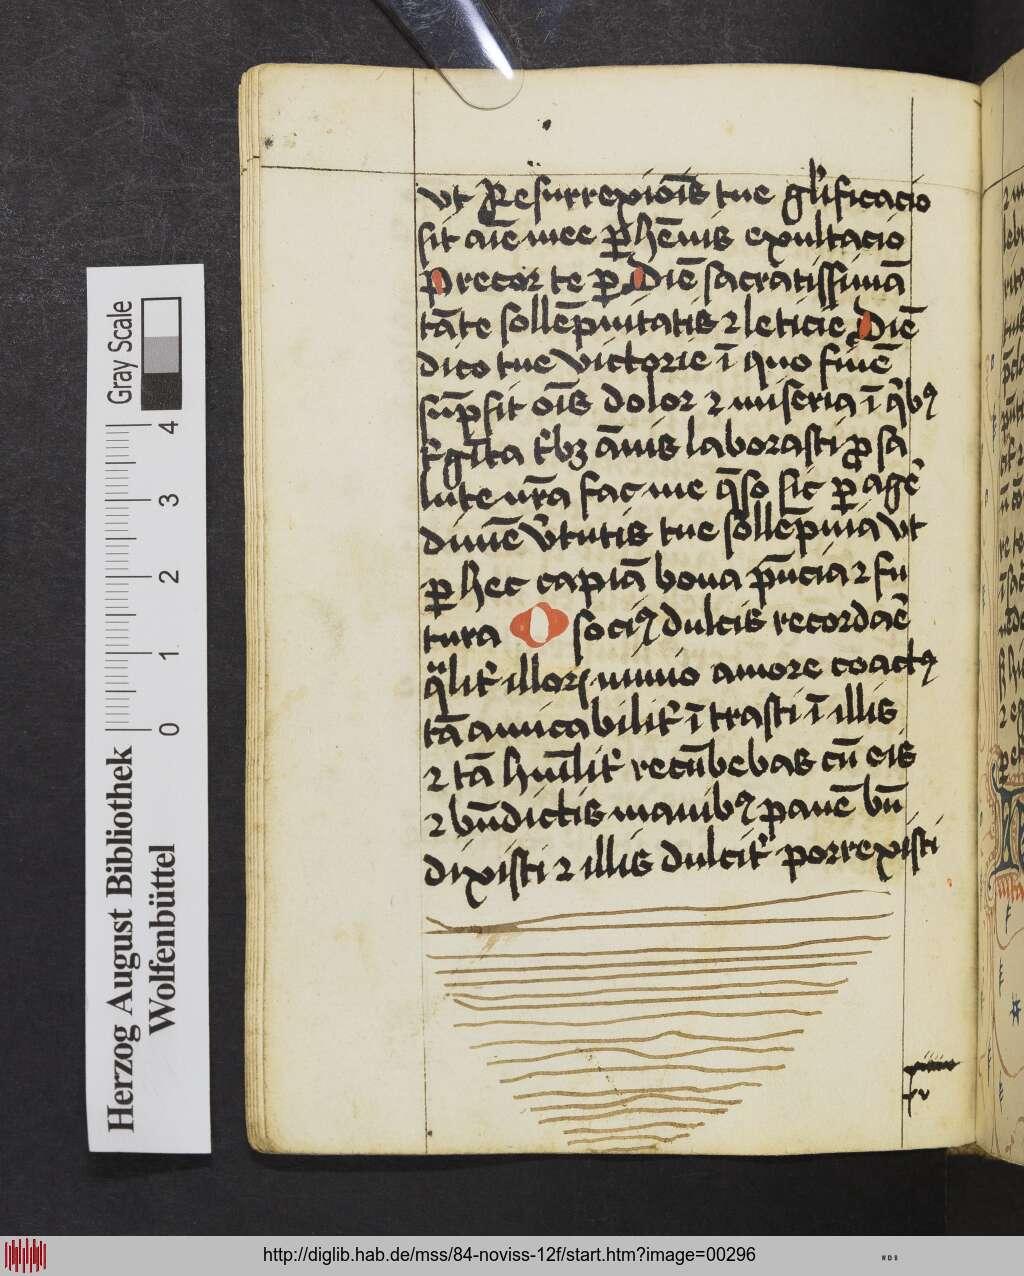 vt Resurrexiois tue gl'ificacio
sit aīe mee p̲hēnis exultacio
Precor te p̲ Diē sacratissimā
tāte sollēpnitatis ⁊ leticie Diē
dico tue victorie ī quo finē
sūpsit oīs dolor ⁊ miseria ī qͥbꝰ
tͥgīta tͥbꝫ ānis laborasti ꝓ sa
lute nr̄a fac me q̄so sic p̲ agē
diuīe v̓tutis tue sollēpnia vt
p̲ hec capiā bona p̄ncia ⁊ fu
tura O sociꝰ dulcis recordaē
qͣlit̓ illoꝝ nimio amore coactꝰ
tā amicabilit̓ ītrasti ī illis
⁊ tā hūilit̓ recūbebas cū eis
⁊ bn̄dictis manibꝰ panē bn̄
dixisti ⁊ illis dulcit̓ porrexisti
Gray Scale
4
3
2
1
0
Herzog August Bibliothek
Wolfenbüttel
http://diglib.hab.de/mss/84-noviss-12f/start.htm?image=00296
WDB